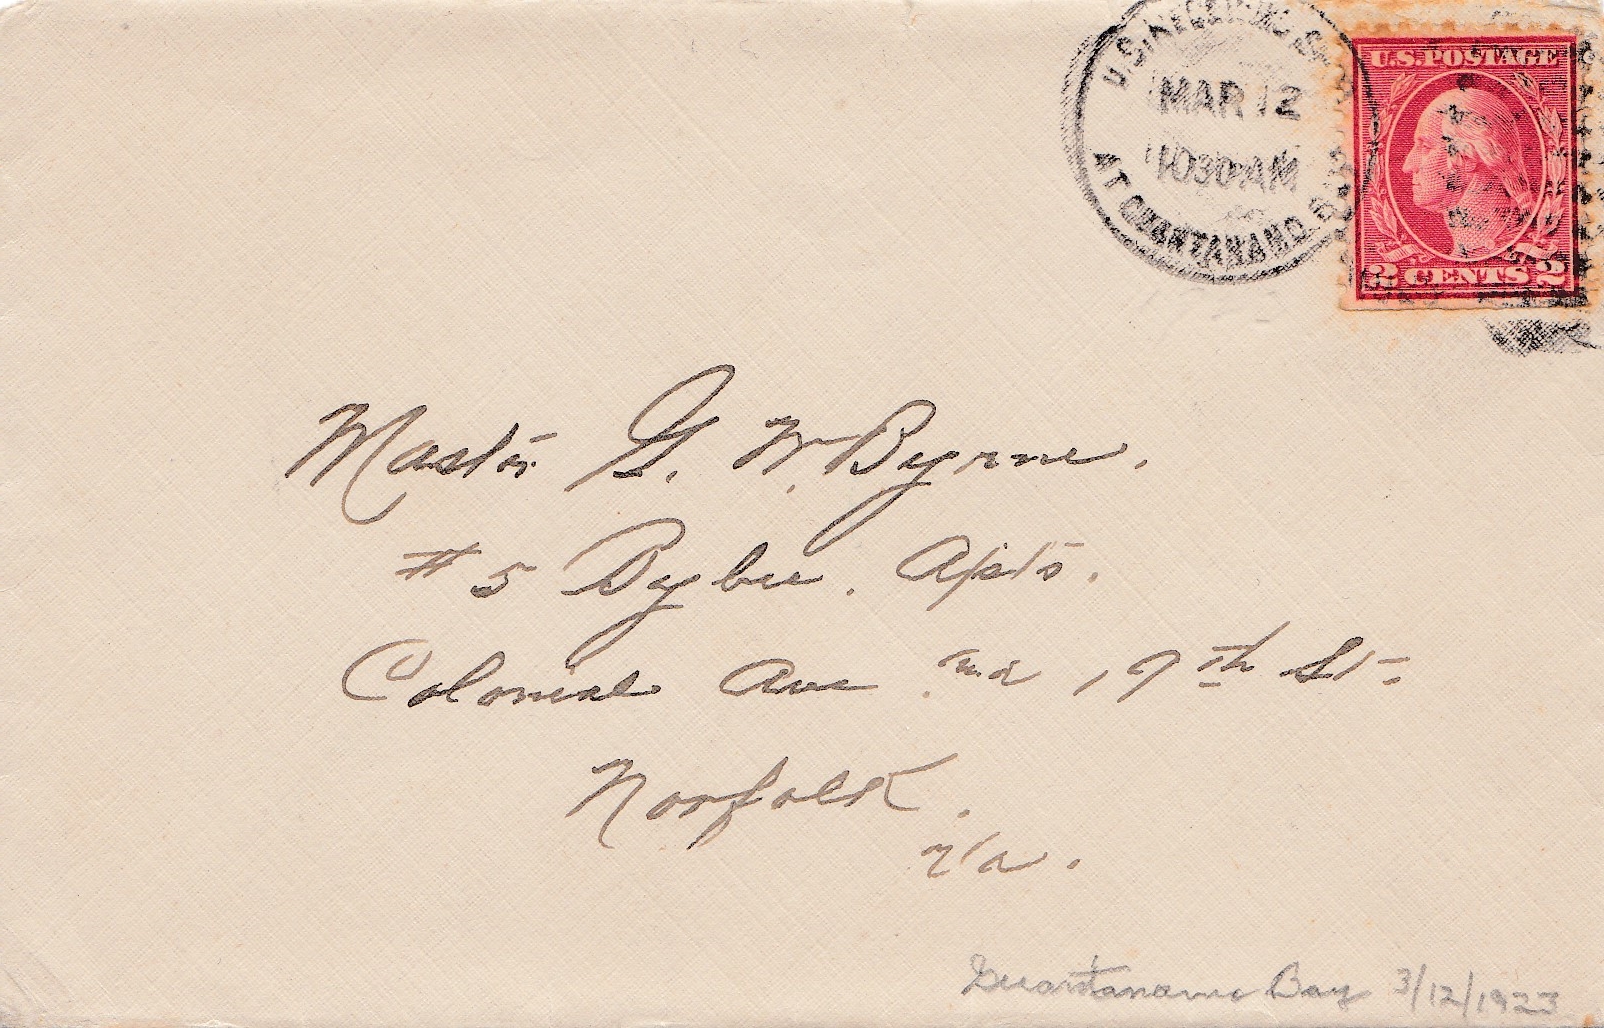 U.S. RECEIVING S
MAR 12
10 30 AM
AT GUANTANAMO B
U.S. POSTAGE
2 CENTS 2
Master G. W. Byrne.
# 5 Bybee. Apts.
Colonial Ave and 17th St.
Norfolk.
Va.
Guantanamo Bay 3/12/1923